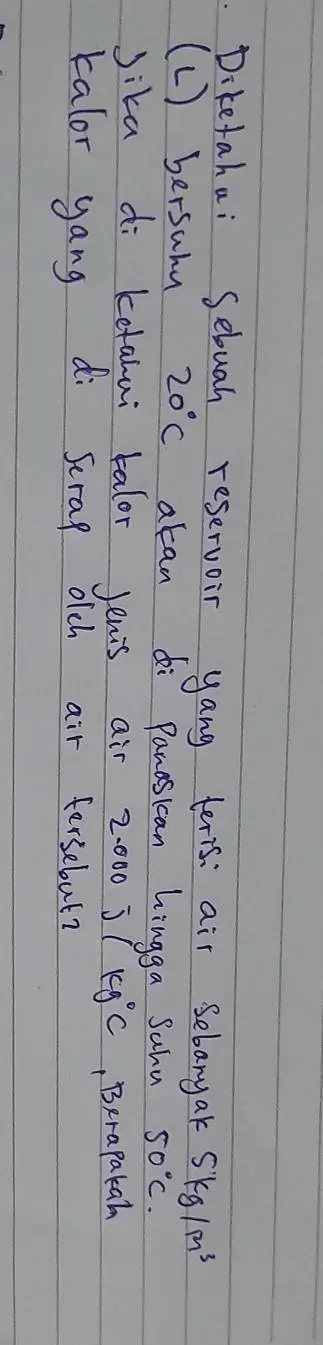 Diketahui sebuah reservoir yang terisi air sebanyak 5 kg/m³
(L) bersuhu 20°C akan di panaskan hingga suhu 50°C.
Jika di ketahui kalor jenis air 2.000 J/kg°C, Berapakah
kalor yang di serap oleh air tersebut?